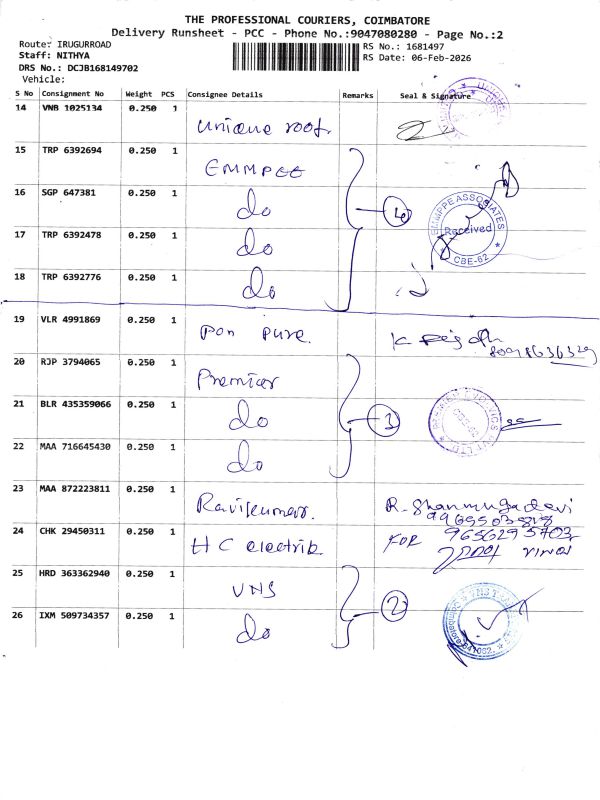 THE PROFESSIONAL COURIERS, COIMBATORE
Delivery Runsheet - PCC - Phone No.:9047080280 - Page No.:2
Route: IRUGURROAD
Staff: NITHYA
DRS No.: DCJB168149702
Vehicle:
RS No.: 1681497
RS Date: 06-Feb-2026
S No Consignment No Weight PCS Consignee Details Remarks Seal & Signature
14 VNB 1025134 0.250 1 unique roof.
15 TRP 6392694 0.250 1 EMMPEE
16 SGP 647381 0.250 1 do
4
EMMPPE ASSOCIATES
Received
CBE-62
17 TRP 6392478 0.250 1 do
18 TRP 6392776 0.250 1 do
19 VLR 4991869 0.250 1 pon pure.
20 RJP 3794065 0.250 1 Premier
21 BLR 435359066 0.250 1 do
3
22 MAA 716645430 0.250 1 do
23 MAA 872223811 0.250 1 Ravikumar. R. Shanmugadevi
24 CHK 29450311 0.250 1 H C electrik. FOR 9656295703
25 HRD 363362940 0.250 1 VNS
2
26 IXM 509734357 0.250 1 do